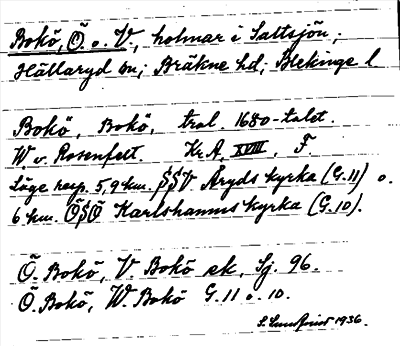 Bokö, Ö. o. V., holmar i Saltsjön;
Hällaryd sn; Bräkne hd; Blekinge l
Bokö, Bokö, trol. 1680-talet.
W v. Rosenfelt. Kr A, XVIII, F.
Läge resp. 5,9 km. SSV Åryds kyrka (G.11) o.
6 km. ÖSÖ Karlshamns kyrka (G.10).
Ö. Bokö, V. Bokö ek, Sj. 96.
Ö. Bokö, W. Bokö G.11 o. 10.
S. Lundqvist 1936.